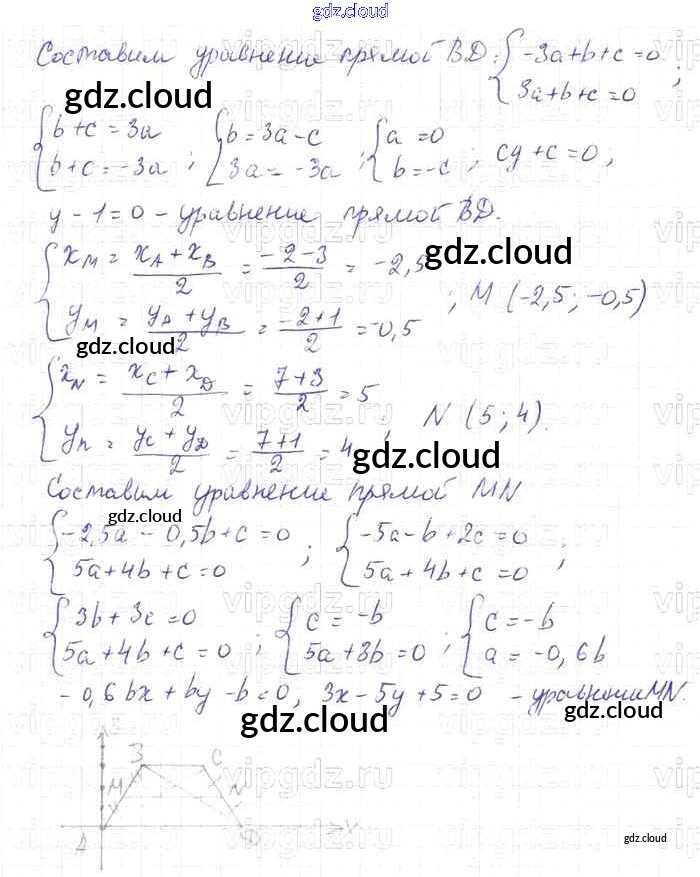 gdz.cloud
Составим уравнение прямой BD: { -3a+b+c=0
3a+b+c=0 ;
gdz.cloud
{ b+c=3a
b+c=-3a ; { b=3a-c
3a=-3a ; { a=0
b=-c ; cy+c=0,
y-1=0 - уравнение прямой BD.
gdz.cloud
{ x_M = (x_A+x_B)/2 = (-2-3)/2 = -2,5
y_M = (y_A+y_B)/2 = (-2+1)/2 = -0,5 ; M (-2,5; -0,5)
gdz.cloud
{ x_N = (x_C+x_D)/2 = (7+3)/2 = 5
y_n = (y_C+y_D)/2 = (7+1)/2 = 4 ; N (5; 4).
gdz.cloud
Составим уравнение прямой MN
gdz.cloud
{ -2,5a-0,5b+c=0
5a+4b+c=0 ; { -5a-b+2c=0
5a+4b+c=0 ;
{ 3b+3c=0
5a+4b+c=0 ; { c=-b
5a+3b=0 ; { c=-b
a=-0,6b
-0,6bx+by-b=0, 3x-5y+5=0 - уравнение MN.
gdz.cloud
gdz.cloud
B C
M N
A D x
gdz.cloud
vipgdz.ru